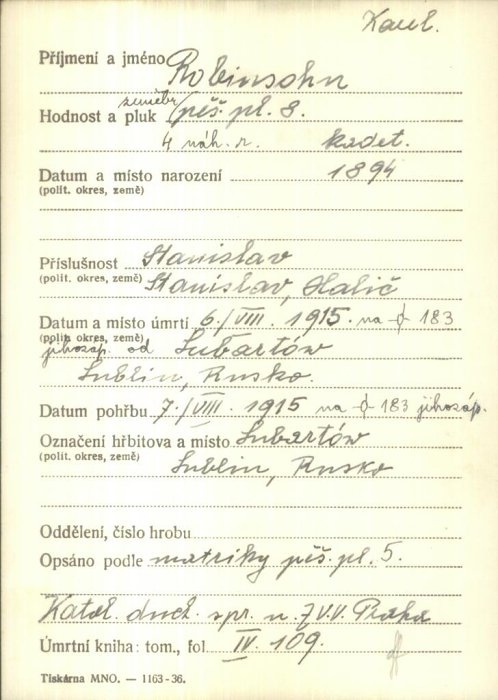 Karel.
Příjmení a jméno Robinsohn
zeměbr.
Hodnost a pluk pěš. pl. 8.
4 náh. r. kadet.
Datum a místo narození 1894
(polit. okres, země)
Příslušnost Stanislav
(polit. okres, země) Stanislav, Halič
Datum a místo úmrtí 6./VIII. 1915. na 183
(polit. okres, země)
jihozáp. od Lubartów
Lublin, Rusko.
Datum pohřbu 7./VIII. 1915 na 183 jihozáp.
Označení hřbitova a místo Lubartów
(polit. okres, země) Lublin, Rusko
Oddělení, číslo hrobu
Opsáno podle matriky pěš. pl. 5.
Katol. duch. spr. u Z.V.V. Praha
Úmrtní kniha: tom., fol IV. 109.
Tiskárna MNO. — 1163-36.